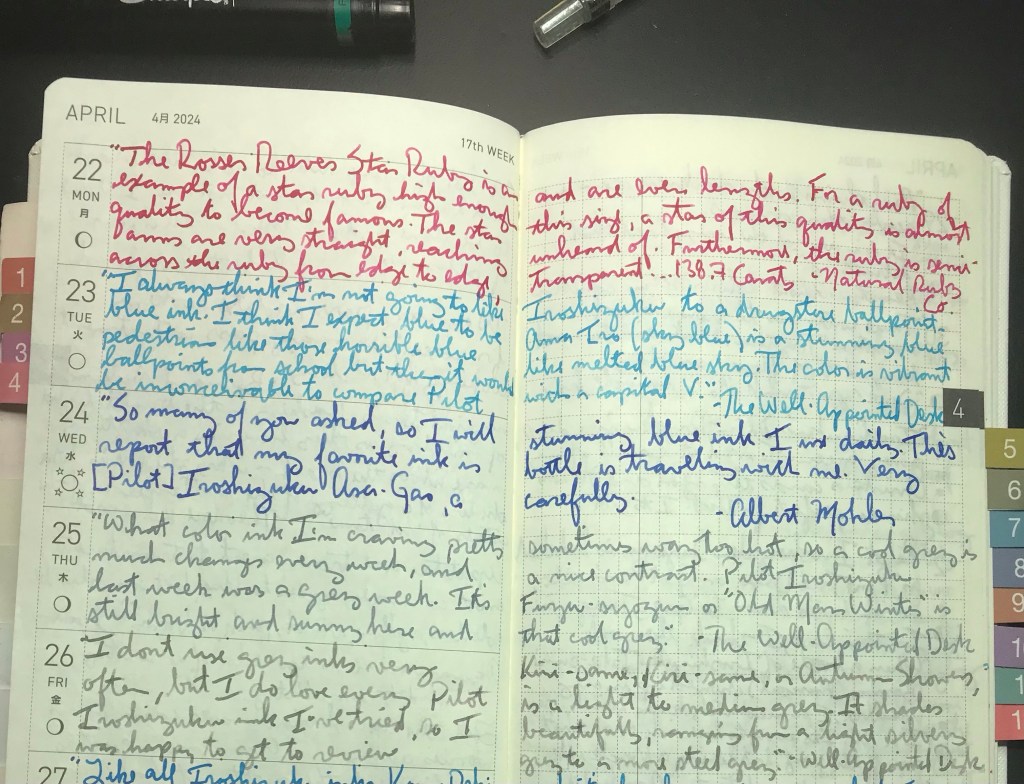 APRIL 4月 2024
17th WEEK
22
MON
月
"The Rosser Reeves Star Ruby is an
example of a star ruby high enough
quality to become famous. The star
arms are very straight, reaching
across the ruby from edge to edge,
and are even lengths. For a ruby of
this size, a star of this quality is almost
unheard of. Furthermore, the ruby is semi-
transparent...138.7 Carats -Natural Ruby
Co.
23
TUE
火
"I always think I'm not going to like
blue ink. I think I expect blue to be
pedestrian like those horrible blue
ballpoints from school but then it would
be inconceivable to compare Pilot
Iroshizuku to a drugstore ballpoint.
Ama Iro (sky blue) is a stunning blue
like melted blue sky. The color is vibrant
with a capital V."
-The Well-Appointed Desk
24
WED
水
"So many of you asked, so I will
report that my favorite ink is
[Pilot] Iroshizuku Asa-Gao, a
stunning blue ink I use daily. This
bottle is traveling with me. Very
carefully.
- Albert Mohler
25
THU
木
"What color ink I'm craving pretty
much changes every week, and
last week was a grey week. It's
still bright and sunny here and
sometimes way too hot, so a cool grey is
a nice contrast. Pilot Iroshizuku
Fuyu-syogun or "Old Man Winter" is
that cool grey." -The Well-Appointed Desk
26
FRI
金
"I don't use grey inks very
often, but I do love every Pilot
Iroshizuku ink I've tried, so I
was happy to get to review
Kiri-same. Kiri-same, or Autumn Shower,
is a light to medium grey. It shades
beautifully, ranging from a light silvery
grey to a more steel grey." -Well-Appointed Desk
27
"Like all Iroshizuku inks
1
2
3
4
4
5
6
7
8
9
1
1
1